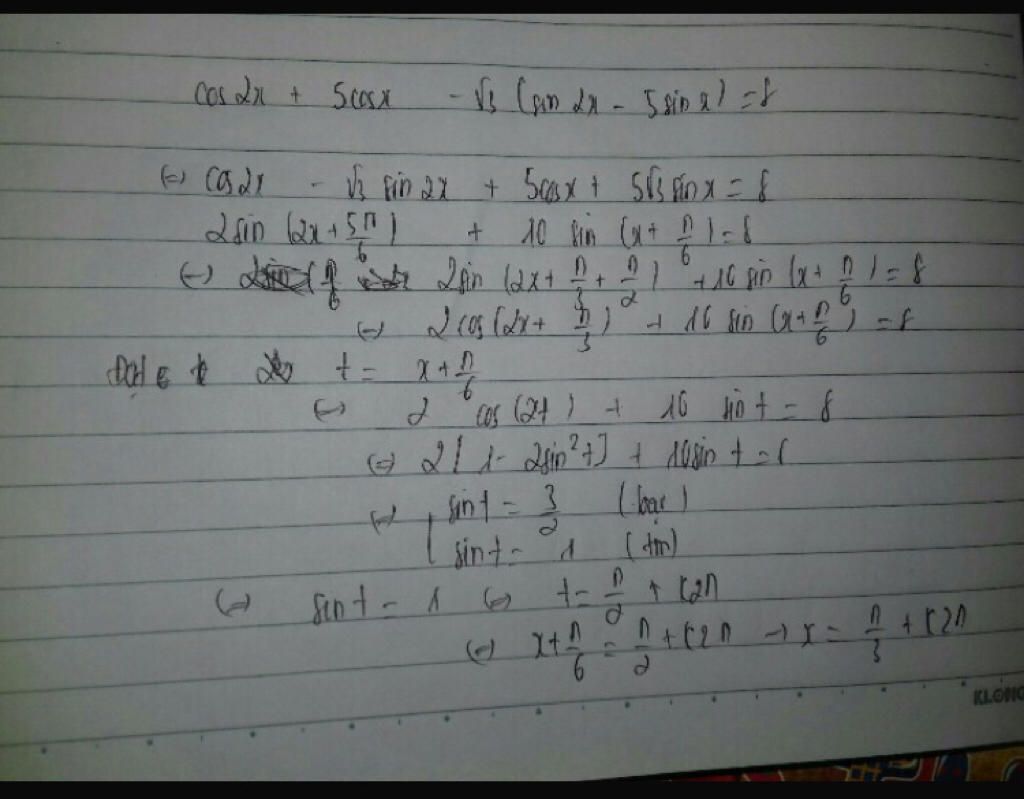 cos2x + 5cosx - √3 (sin 2x - 5sinx) = 8
(=) cos2x - √3 sin 2x + 5cosx + 5√3 sinx = 8
2sin (2x + 5π/6) + 10 sin (x + π/6) = 8
(=) 2sin (2x + π/3 + π/2) + 10 sin (x + π/6) = 8
(=) 2cos (2x + π/3) + 10 sin (x + π/6) = 8
Đặt t = x + π/6
(=) 2 cos (2t) + 10 sin t = 8
(=) 2[1 - 2sin²t] + 10sin t = 8
(=) [sint = 3/2 (loại)
sint = 1 (tm)
(=) sin t = 1 (=) t = π/2 + k2π
(=) x + π/6 = π/2 + k2π → x = π/3 + k2π
KLONG